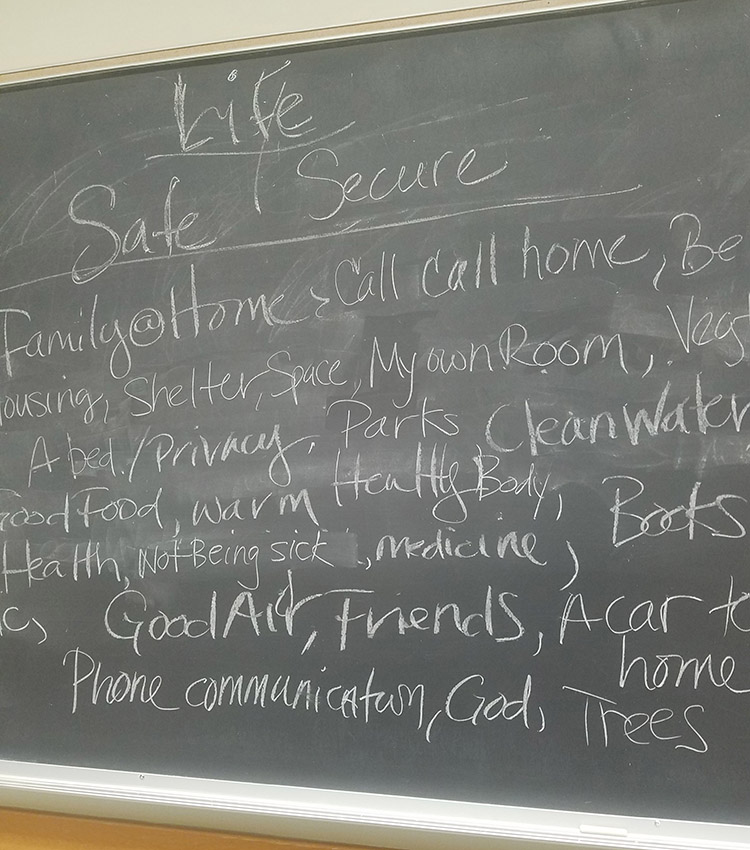 Life
Safe / Secure
Family@Home, Call Call home, Be
ousing, Shelter, Space, My own Room, Veg
A bed / Privacy, Parks Clean Water
Good Food, warm Healthy Body, Books
Health, Not Being sick, medicine,
ic, Good Air, Friends, A car to
home
Phone communication, God, Trees